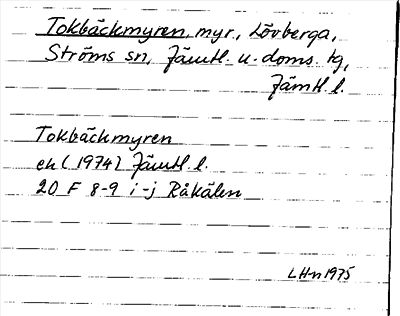 Tokbäckmyren, myr, Lövberga,
Ströms sn, Jämtl. n. doms. tg,
Jämtl. l.
Tokbäckmyren
ek (1974) Jämtl l.
20 F 8-9 i-j Råkälen
LHn 1975